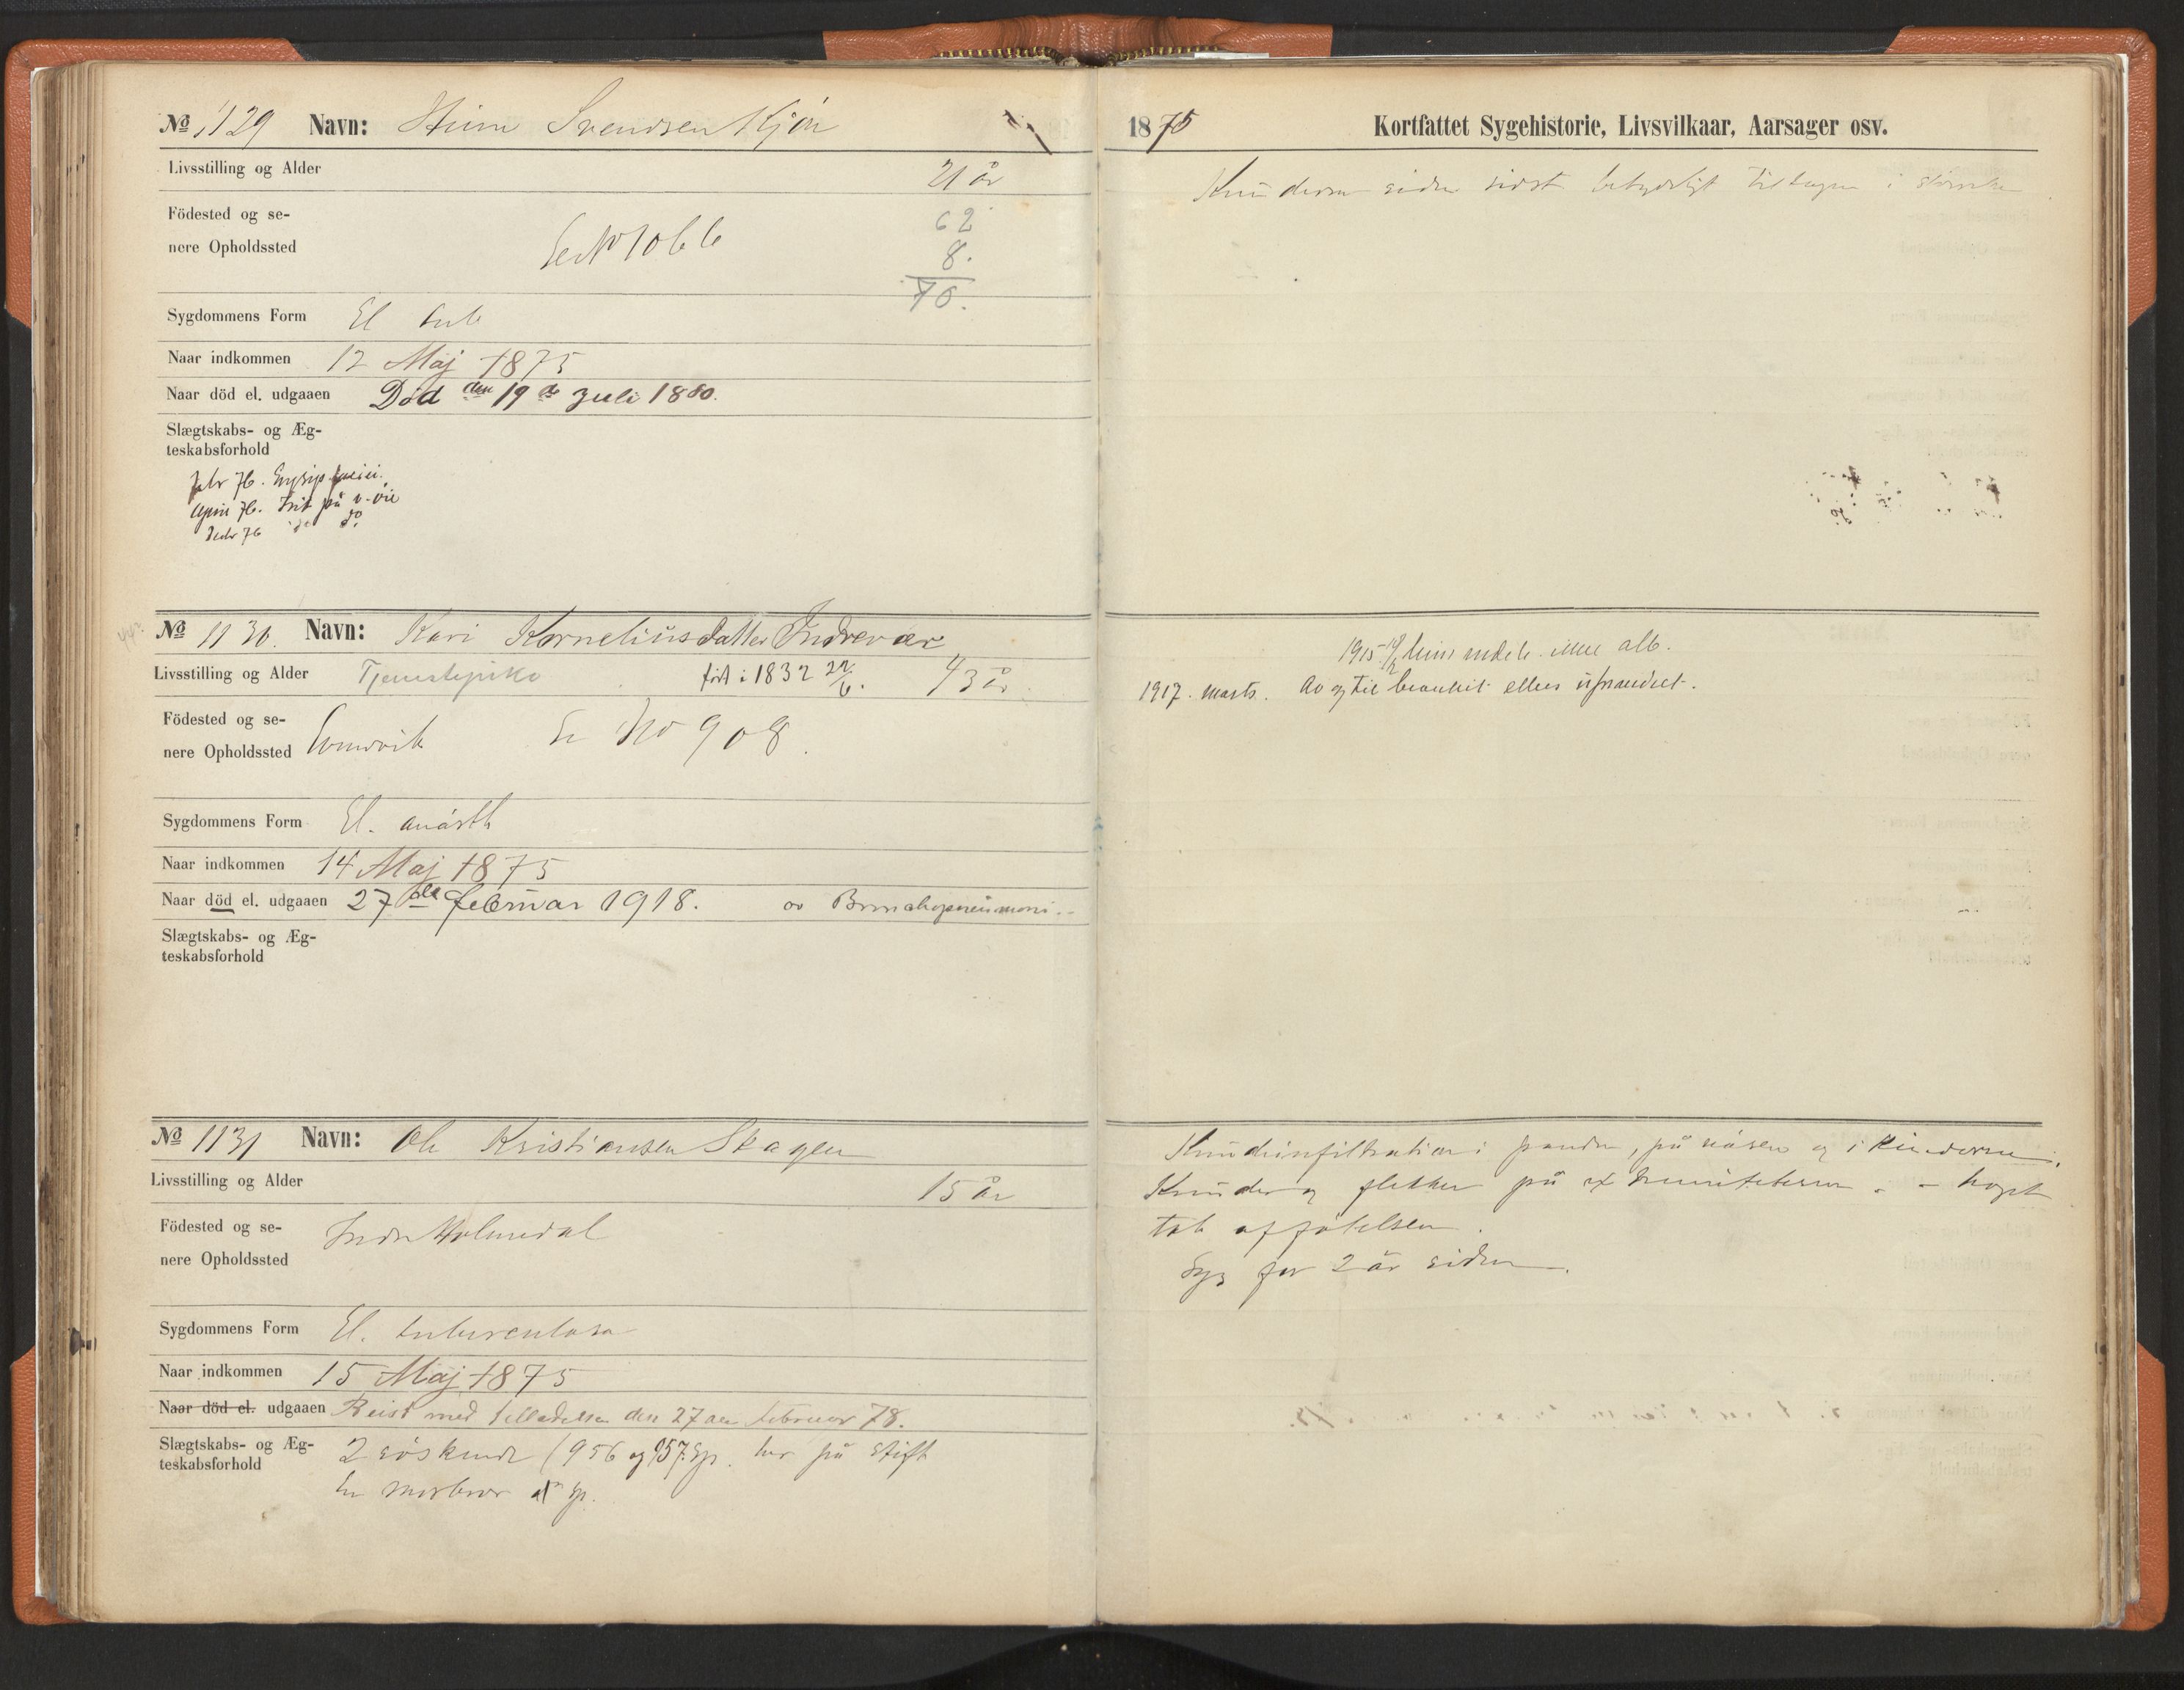 No 1129 Navn: Svendsen Kjön
Livsstilling og Alder 21 år
Födested og se-
nere Opholdssted Se No 1066
62
8.
70.
Sygdommens Form El tub
Naar indkommen 12 Maj 1875
Naar död el. udgaaen Död den 19de Juli 1880.
Slægtskabs- og Æg-
teskabsforhold
Febr 76. Erysip. faciei.
April 76. Irit på v. öie
Decbr 76 do do
No 1130. Navn: Kari Korneliusdatter Indrevær
Livsstilling og Alder Tjenestepike föd i 1832 22/6. 43 år
Födested og se-
nere Opholdssted Evindvik Se No 908.
Sygdommens Form El. anästh
Naar indkommen 14 Maj 1875
Naar död el. udgaaen 27de februar 1918. av Bronchopneumoni.
Slægtskabs- og Æg-
teskabsforhold
No 1131 Navn: Ole Kristiansen Skagen
Livsstilling og Alder 15 år
Födested og se-
nere Opholdssted Indre Holmedal
Sygdommens Form El. tuberculosa
Naar indkommen 15 Maj 1875
Naar död el. udgaaen Reist med tilladelse den 27de februar 78.
Slægtskabs- og Æg-
teskabsforhold 2 söskende (956 og 957 sp. her på stift
En morbror sp.
1875 Kortfattet Sygehistorie, Livsvilkaar, Aarsager osv.
Knuderne siden sidst betydeligt tiltagne i störrelse
1915 ikke alb.
1917. marts. Av og til bronkit ellers uforandret.
Knudeinfiltration i panden, på näsen og i kinderne.
Knuder og flekker på extremiteterne. – höyst
tab af fölelsen.
Syg for 2 år siden.